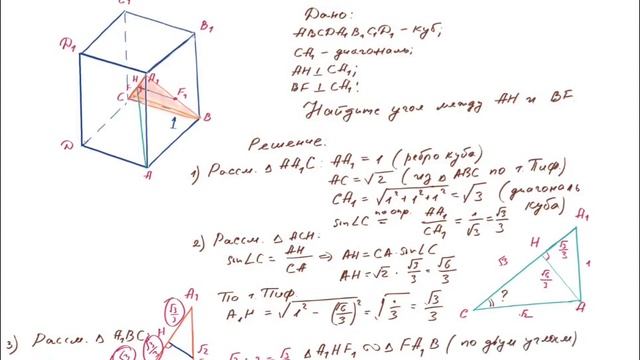 C₁
B₁
D₁
A₁
H
F
F₁
C
B
1
D
A
Дано:
ABCDA₁B₁C₁D₁ - куб;
CA₁ - диагональ;
AH ⊥ CA₁;
BF ⊥ CA₁.
Найдите угол между AH и BF
Решение.
1) Рассм. △ AA₁C: AA₁ = 1 (ребро куба)
AC = √2 (из △ ABC по т. Пиф)
CA₁ = √(1² + 1² + 1²) = √3 (диагональ куба)
sin∠C = по опр. AA₁/CA₁ = 1/√3 = √3/3
2) Рассм. △ ACH:
sin∠C = AH/CA ⇒ AH = CA · sin∠C
AH = √2 · √3/3 = √6/3
По т. Пиф.
A₁H = √(1² - (√6/3)²) = √(1/3) = √3/3
A₁
H
√3/3
√3
√6/3
1
?
C
√2
A
3) Рассм. △ A₁BC
√3/3
A₁
H
√2
△ A₁HF₁ ∾ △ FA₁B (по двум углам)